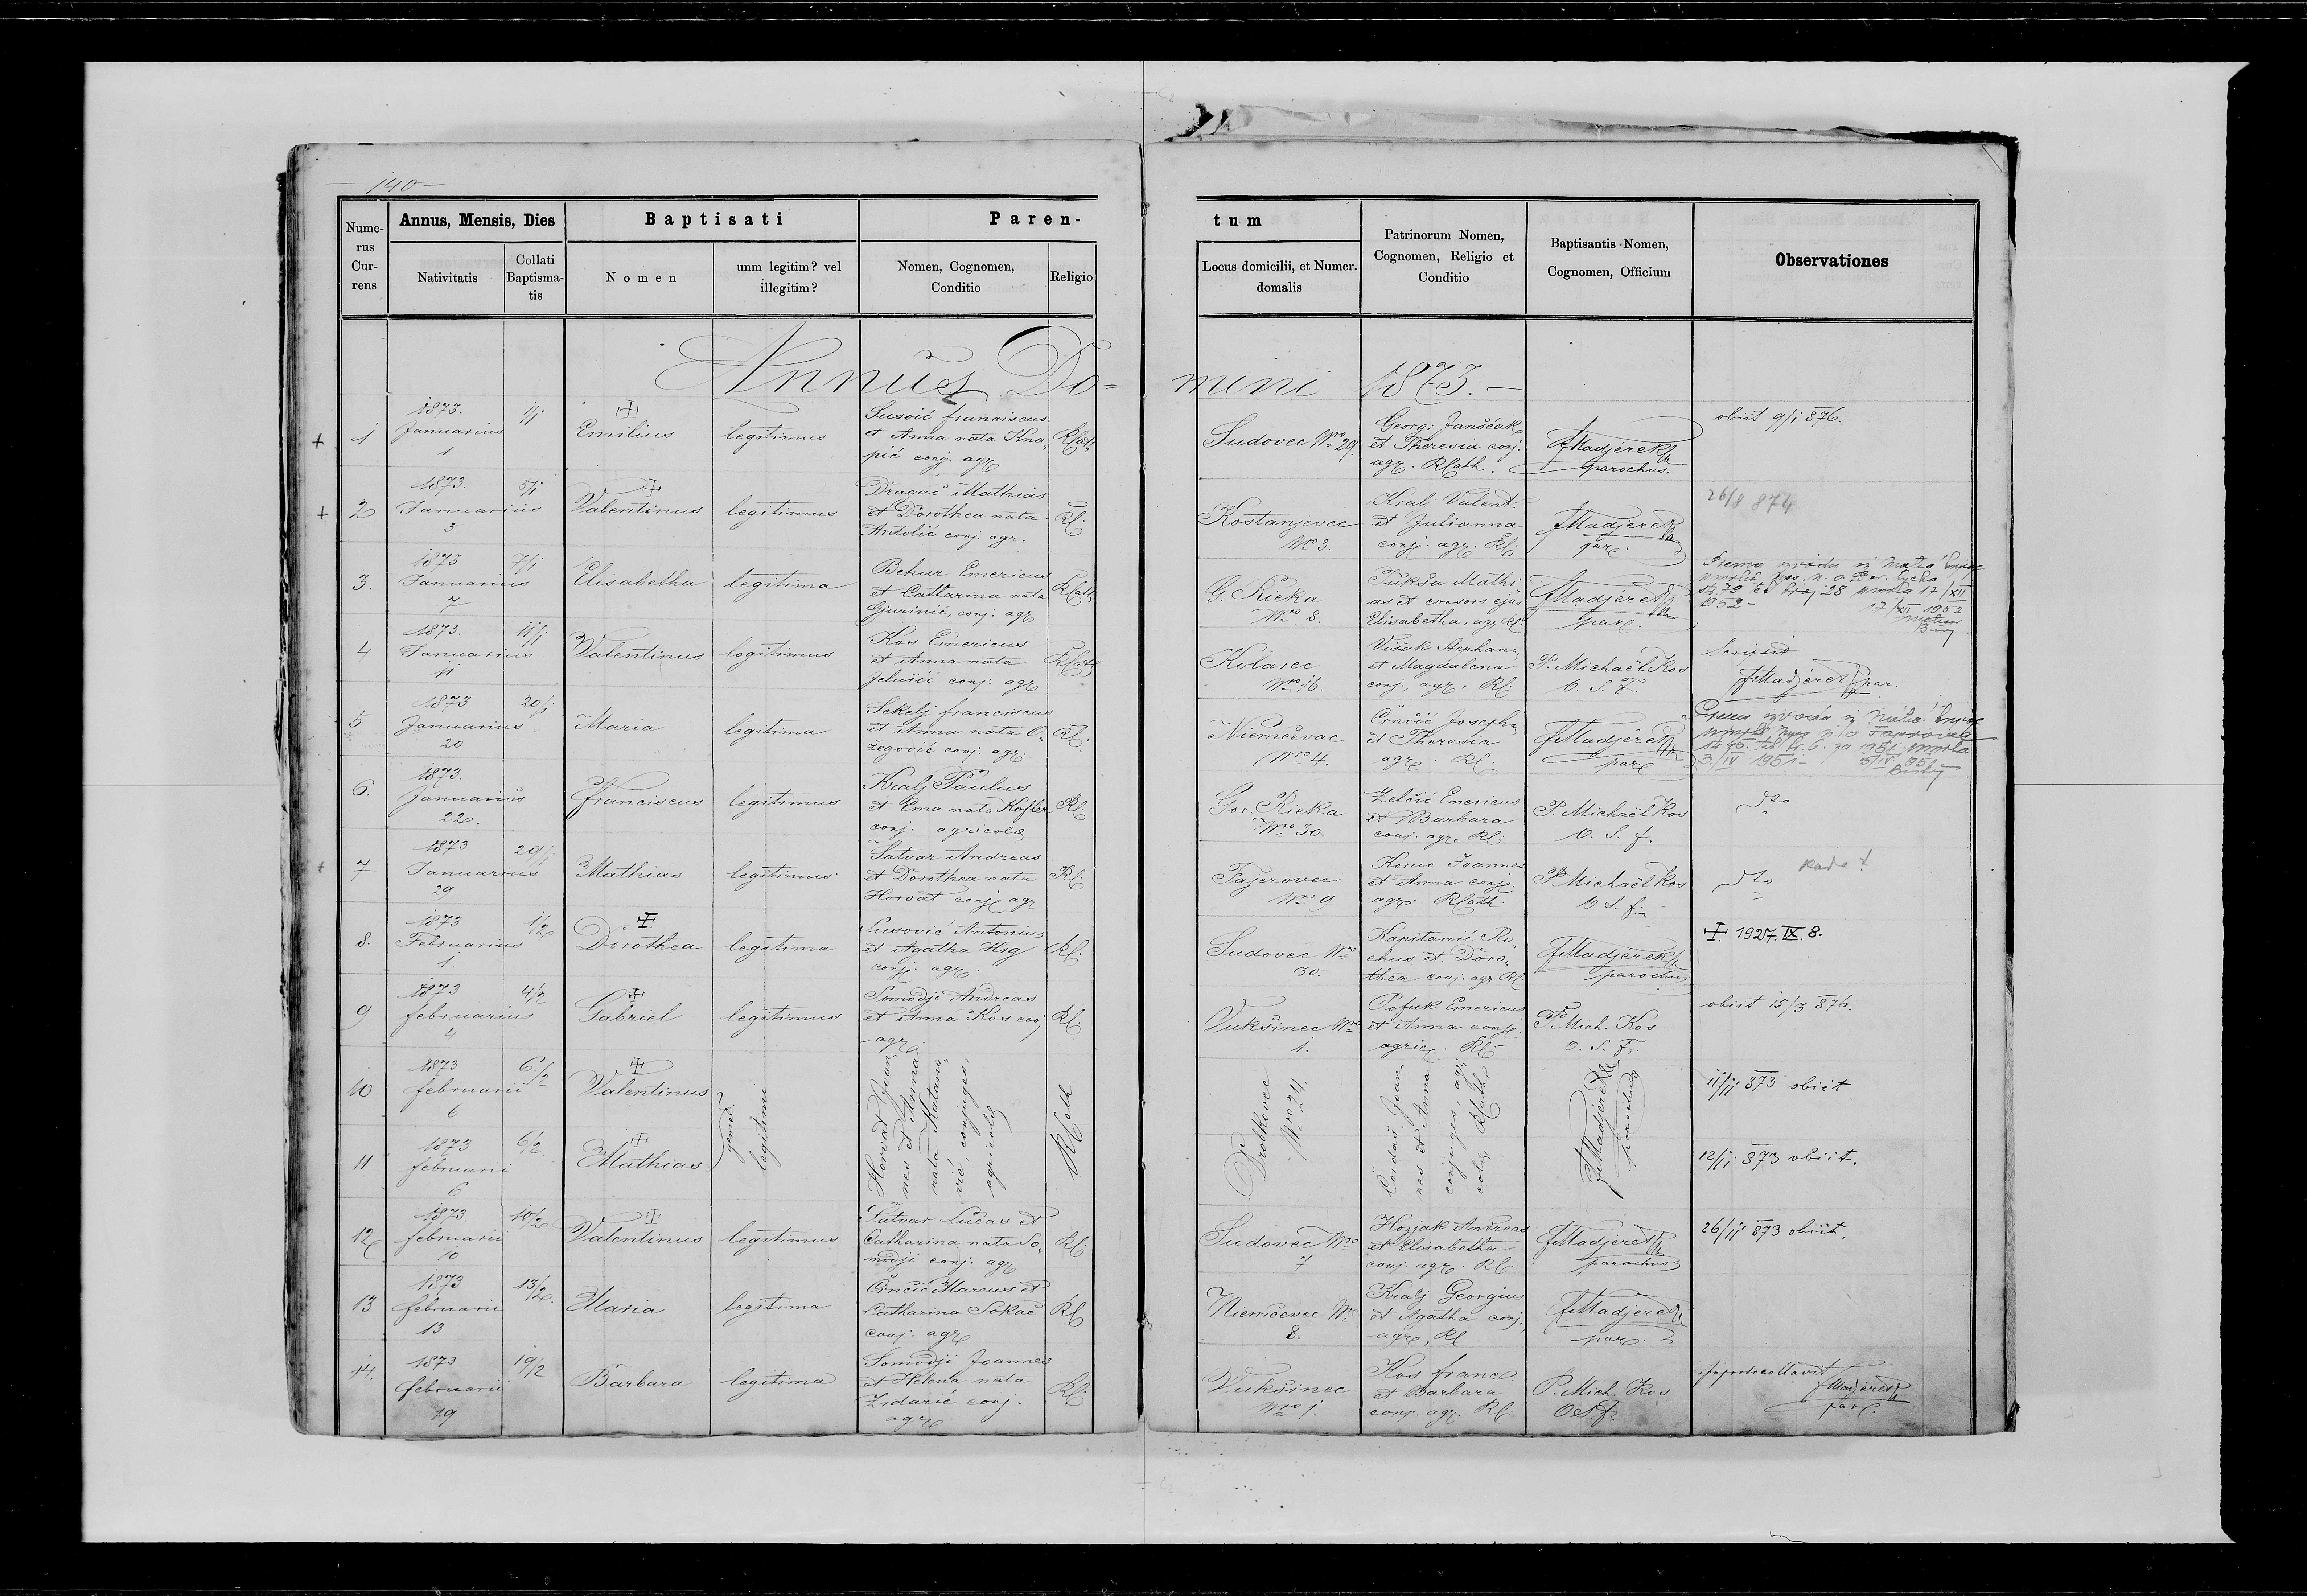 — 140 —
Nume-
rus
Cur-
rens
Annus, Mensis, Dies
Nativitatis
Collati
Baptisma-
tis
Baptisati
Nomen
unm legitim? vel
illegitim?
Paren-
Nomen, Cognomen,
Conditio
Religio
tum
Locus domicilii, et Numer.
domalis
Patrinorum Nomen,
Cognomen, Religio et
Conditio
Baptisantis Nomen,
Cognomen, Officium
Observationes
Annus Do=
mini 1873.-
+ 1
1873.
Januarius
1
1/1
Emilius
legitimus
franciscus
et Anna nata Kna-
pić conj. agr.
RCath.
Sudovec Nro 29.
Georg: Janšćak
et Theresia conj.
agr. RCath.
FMadjerek
parochus.
obiit 9/1 876.
+ 2
1873.
Januarius
5
5/1
Valentinus
legitimus
Dragač Mathias
et Dorothea nata
Antolić conj. agr.
RC.
Kostanjevec
Nro 3.
Kralj Valent.
et Julianna
conj. agr. RC.
FMadjerek
par.
26/8 874
3.
1873
Januarius
7
7/1
Elisabetha
legitima
Behur Emericus
et Catharina nata
Gjurinić, conj. agr.
RCath.
G. Rieka
Nro 8.
Tukša Mathi
as et consors ejus
Elisabetha, agr. RC.
FMadjerek
par.
str. 79 28 umrla 17/XII
1952 -
17/XII 1952
4
1873.
Januarius
11
11/1
Valentinus
legitimus
Kos Emericus
et Anna nata
Jelušić conj. agr.
RCath.
Kolarec
Nro 16.
Višak Stephan.
et Magdalena
conj., agr. RC.
P. Michaël Kos
O. S. F.
FMadjerek par.
5
1873
Januarius
20
20/1
Maria
legitima
Sekelj franciscus
et Anna nata O-
žegović conj. agr.
RC.
Niemčevac
Nro 4.
Črnčić Joseph.
et Theresia
agr. RC.
FMadjerek
par.
za 1951 umrla
3/IV 1951 -
6.
1873.
Januarius
22.
Franciscus
legitimus
Kralj Paulus
et Ema nata Kofler
conj. agricolæ
RC.
Gor. Rieka
Nro 30.
Zelčić Emericus
et Barbara
conj. agr. RC.
P. Michaël Kos
O. S. f.
dto
+ 7
1873
Januarius
29
29/1
Mathias
legitimus
Šatvar Andreas
et Dorothea nata
Horvat conj. agr.
RC.
Fajerovec
Nro 9
Joannes
et Anna conj.
agr. RCath.
P. Michaël Kos
O S. f.
dto
8.
1873
Februarius
1.
1/2
Dorothea
legitima
Antonius
et Agatha Hig
conj. agr.
RC.
Sudovec Nro
30.
Kapitanić Ro-
chus et Doro-
thea conj. agr. RC.
FMadjerek
parochus
+ 1927. IX. 8.
9
1873
februarius
4
4/2
Gabriel
legitimus
Somodji Andreas
et Anna Kos conj.
agr.
RC.
Vukšinec Nro
1.
Pofuk Emericus
et Anna conj.
agric. RC.
P. Mich. Kos
O. S. F.
obiit 15/3 876.
10
1873
februarii
6
6/2
Valentinus
11
1873
februarii
6
6/2
Mathias
gemel.
legitimi
Horvat Joan-
nes et Anna
nata Kolano-
vić, conjuges,
agricolæ
RCath.
Drobkovec
Nro 24.
Čordaš Joan-
nes et Anna
conjuges, agri-
colæ RCath.
FMadjerek
parochus
11/II 873 obiit
12/II 873 obiit.
12
1873.
februarii
10
10/2
Valentinus
legitimus
Šatvar Lucas et
Catharina nata So-
modji conj. agr.
RC.
Sudovec Nro
7
Hozjak Andreas
et Elisabetha
conj. agr. RC.
FMadjerek
parochus
26/II 873 obiit.
13
1873
februarii
13
13/2.
Maria
legitima
Črnčić Marcus et
Catharina Sokač
conj. agr.
RC
Niemčevec Nro
8.
Kralj Georgius
et Agatha conj.,
agr., RC
FMadjerek
par.
14.
1873
februarii
19
19/2
Barbara
legitima
Somodji Joannes
et Helena nata
Zidarić conj.
agr.
RC.
Vukšinec
Nro 1.
Kos franc.
et Barbara
conj. agr. RC.
P. Mich. Kos
O.S.f.
Inprotocollavit
FMadjerek
par.